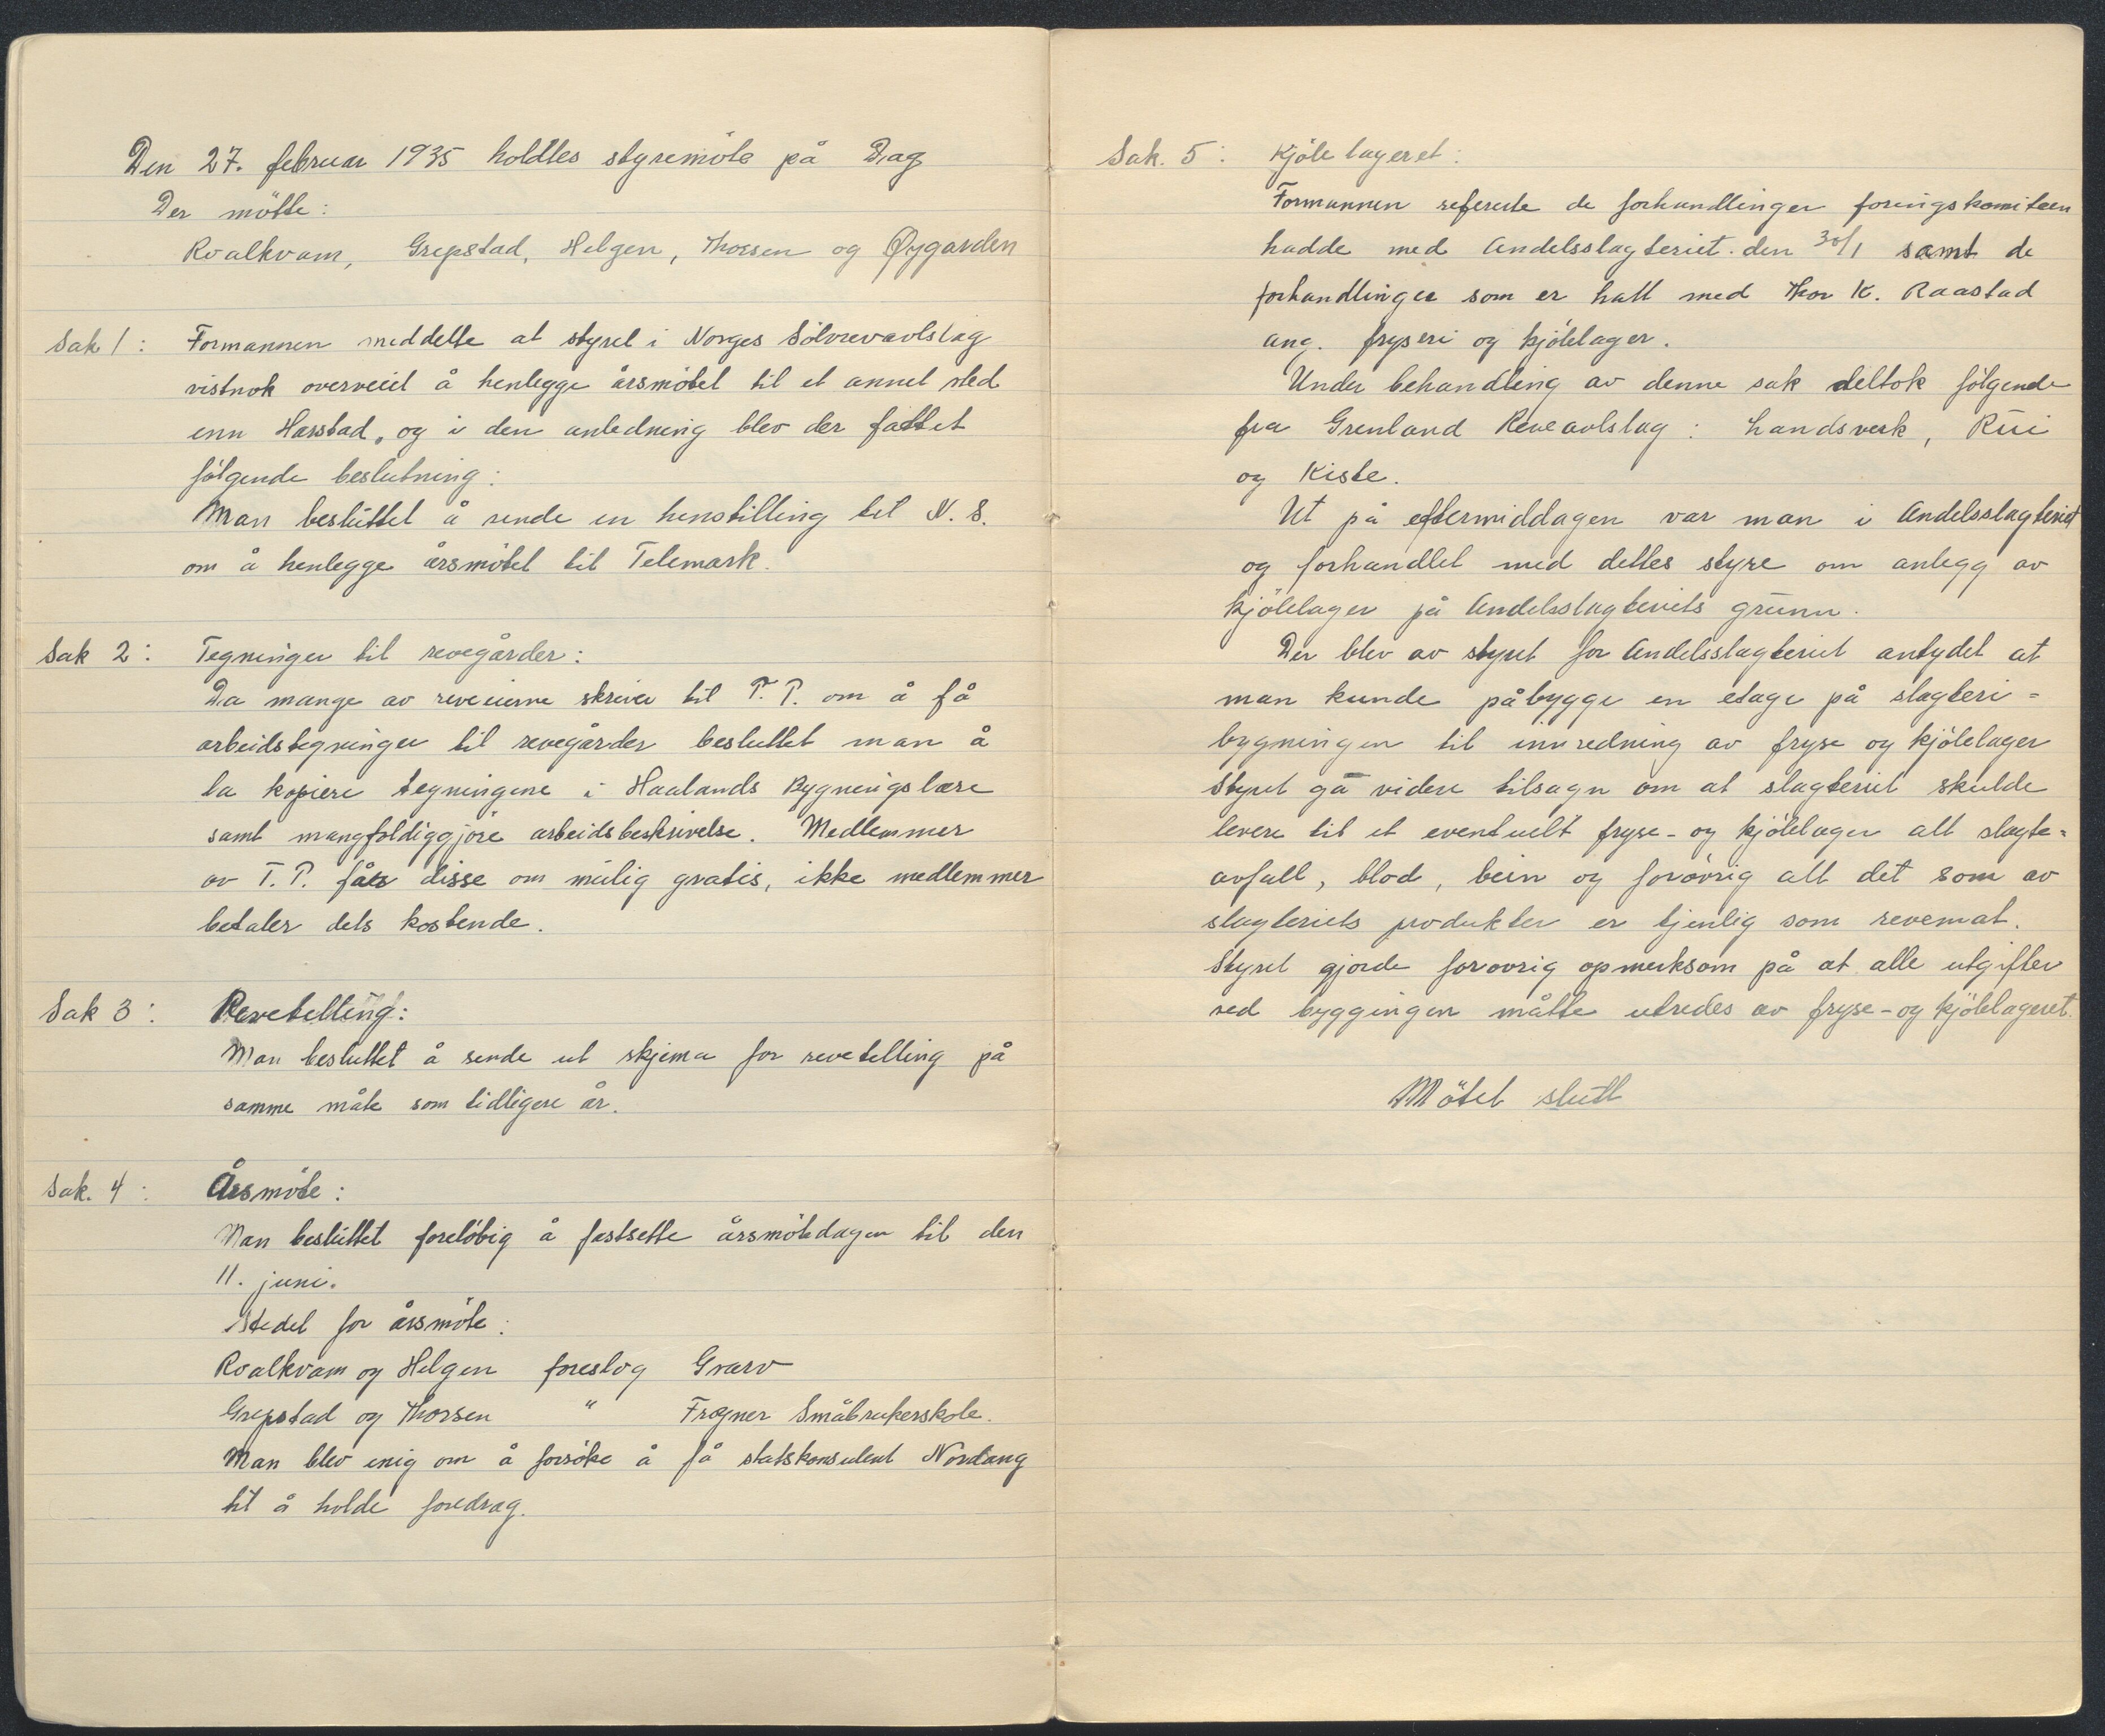 Den 27. februar 1935 holdtes styremöte på Dag
Der mötte:
Roalkvam, Grepstad, Helgen, Thorsen og Øygarden
Sak 1: Formannen meddelte at styret i Norges Sölvrevavlslag
vistnok overveiet å henlegge årsmötet til et annet sted
enn Harstad, og i den anledning blev der fattet
fölgende beslutning:
Man besluttet å sende en henstilling til N.S.
om å henlegge årsmötet til Telemark.
Sak 2: Tegninger til revegårder:
Da mange av reveeierne skriver til T.P. om å få
arbeidstegninger til revegårder besluttet man å
la kopiere tegningene i Haalands Bygningslære
samt mangfoldiggjöre arbeidsbeskrivelse. Medlemmer
av T.P. får disse om mulig gratis, ikke medlemmer
betaler dets kostende.
Sak 3: Revetelling:
Man besluttet å sende ut skjema for revetelling på
samme måte som tidligere år.
Sak. 4: Årsmöte:
Man besluttet forelöbig å fastsette årsmötedagen til den
11. juni.
Stedet for årsmöte:
Roalkvam og Helgen foreslog Gvarv
Grepstad og Thorsen " Frogner Småbrukerskole.
Man blev enig om å forsöke å få statskonsulent Nordang
til å holde foredrag.
Sak. 5: Kjölelageret:
Formannen refererte de forhandlinger foringskomiteen
hadde med Andelsslagteriet den 30/1 samt de
forhandlinger som er hatt med Thor K. Raastad
ang. fryseri og kjölelager.
Under behandling av denne sak deltok fölgende
fra Grenland Reveavlslag: Landsverk, Rui
og Kiste.
Ut på eftermiddagen var man i Andelsslagteriet
og forhandlet med dettes styre om anlegg av
kjölelager på Andelsslagteriets grunn.
Der blev av styret for Andelsslagteriet antydet at
man kunde påbygge en etage på slagteri=
bygningen til innredning av fryse og kjölelager
Styret ga videre tilsagn om at slagteriet skulde
levere til et eventuelt fryse- og kjölelager alt slagte=
avfall, blod, bein og forövrig alt det som av
slagteriets produkter er tjenlig som revemat.
Styret gjorde forovrig opmerksom på at alle utgifter
ved byggingen måtte utredes av fryse- og kjölelageret.
Mötet slutt